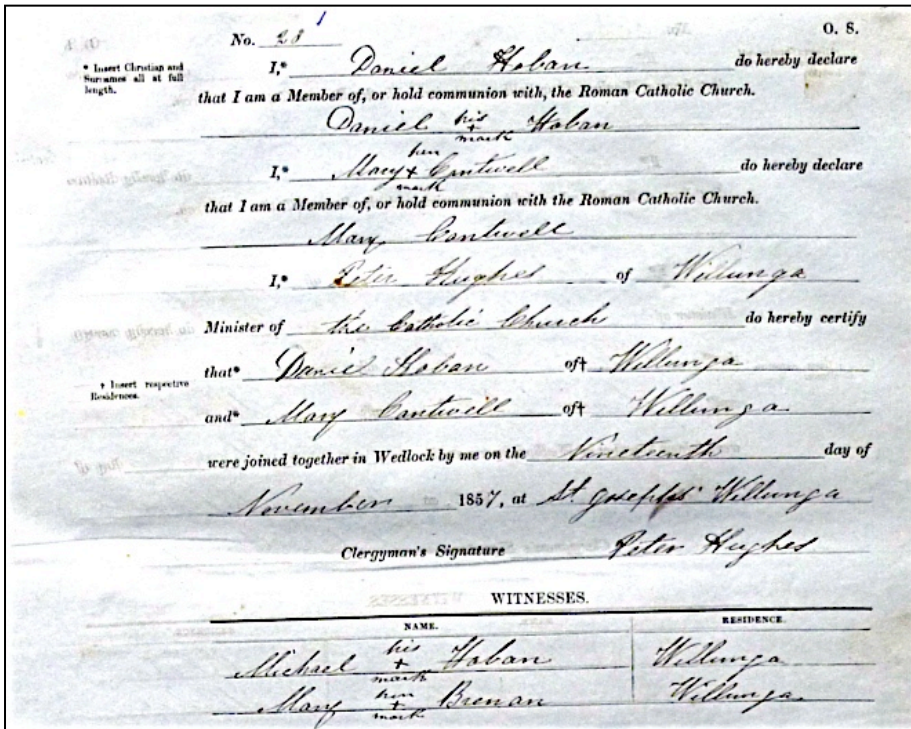 No. 28 O. S.
* Insert Christian and Surnames all at full length.
I,* Daniel Hoban do hereby declare
that I am a Member of, or hold communion with, the Roman Catholic Church.
his
Daniel + Hoban
mark
her
I,* Mary + Cantwell do hereby declare
mark
that I am a Member of, or hold communion with the Roman Catholic Church.
Mary Cantwell
I,* Peter Hughes of Willunga
Minister of the Catholic Church do hereby certify
that* Daniel Hoban of† Willunga
† Insert respective Residences.
and* Mary Cantwell of† Willunga
were joined together in Wedlock by me on the Nineteenth day of
November 1857, at St. Josephs Willunga
Clergyman's Signature Peter Hughes
WITNESSES.
NAME. RESIDENCE.
his
Michael + Hoban Willunga
mark
her
Mary + Brenan Willunga
mark